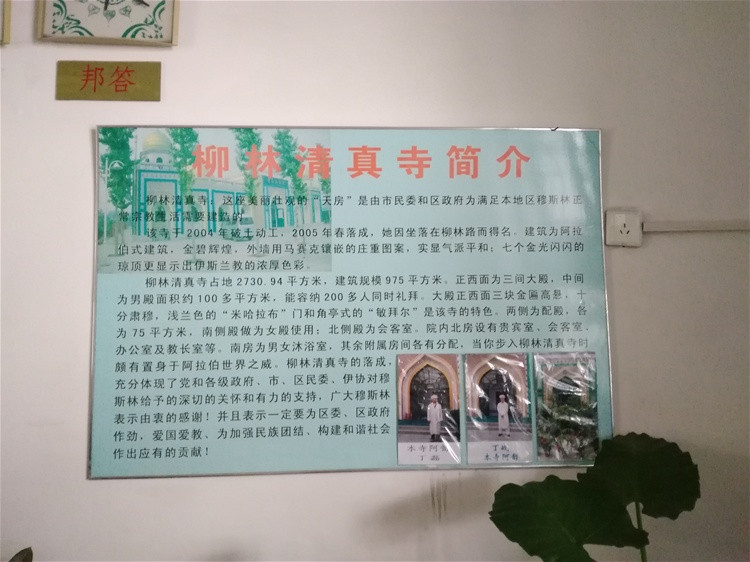 邦答
柳林清真寺简介
柳林清真寺：这座美丽壮观的“天房”是由市民委和区政府为满足本地区穆斯林正
常宗教生活需要建造的。
该寺于2004年破土动工，2005年春落成，她因坐落在柳林路而得名。建筑为阿拉
伯式建筑，金碧辉煌，外墙用马赛克镶嵌的庄重图案，实显气派平和；七个金光闪闪的
琼顶更显示出伊斯兰教的浓厚色彩。
柳林清真寺占地2730.94平方米，建筑规模975平方米。正西面为三间大殿，中间
为男殿面积约100多平方米，能容纳200多人同时礼拜。大殿正西面三块金匾高悬，十
分肃穆，浅兰色的“米哈拉布”门和角亭式的“敏拜尔”是该寺的特色。两侧为配殿，各
为75平方米，南侧殿做为女殿使用；北侧殿为会客室。院内北房设有贵宾室、会客室、
办公室及教长室等。南房为男女沐浴室，其余附属房间各有分配，当你步入柳林清真寺时
颇有置身于阿拉伯世界之威。柳林清真寺的落成，
充分体现了党和各级政府、市、区民委、伊协对穆
斯林给予的深切的关怀和有力的支持，广大穆斯林
表示由衷的感谢！并且表示一定要为区委、区政府
作劲，爱国爱教、为加强民族团结、构建和谐社会
作出应有的贡献！
本寺阿訇
丁
丁
本寺阿訇